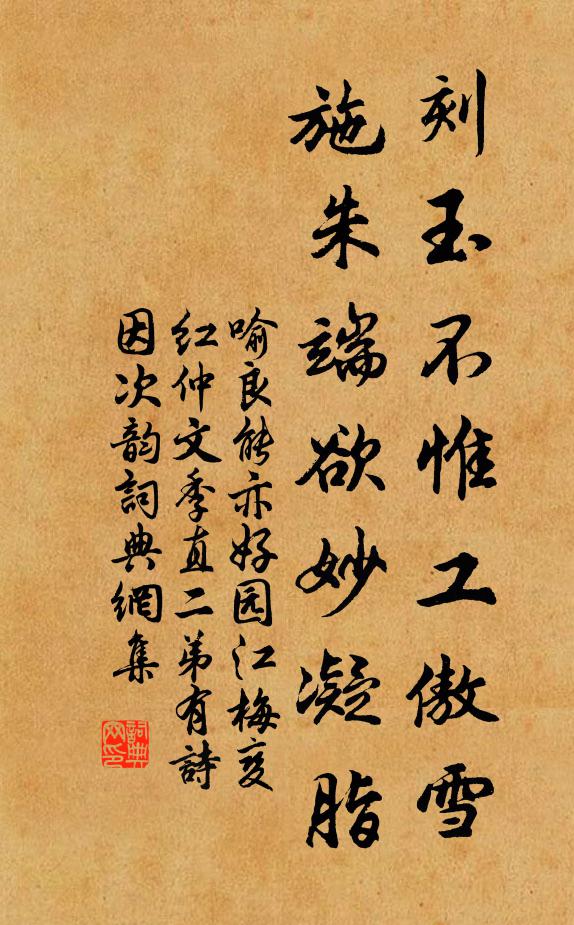 刻玉不惟工傲雪
施朱端欲妙凝脂
喻良能亦好园江梅变
红仲文季直二弟有詩
因次韵詞典網集
詞典
网印